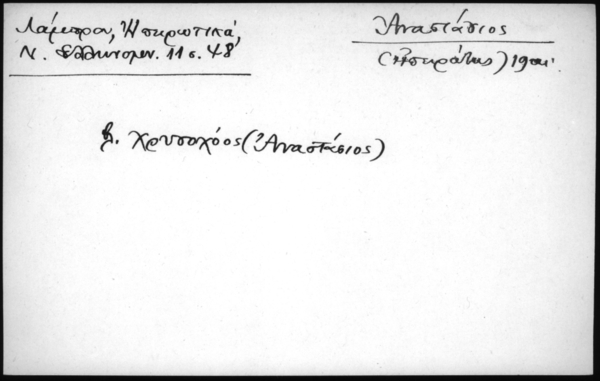 Λάμπρου, Ἠπειρωτικά,
Ν. Ἑλληνομν. 11 σ. 48
Ἀναστάσιος
19 αι.
β. Χρυσοχόος (Ἀναστάσιος)